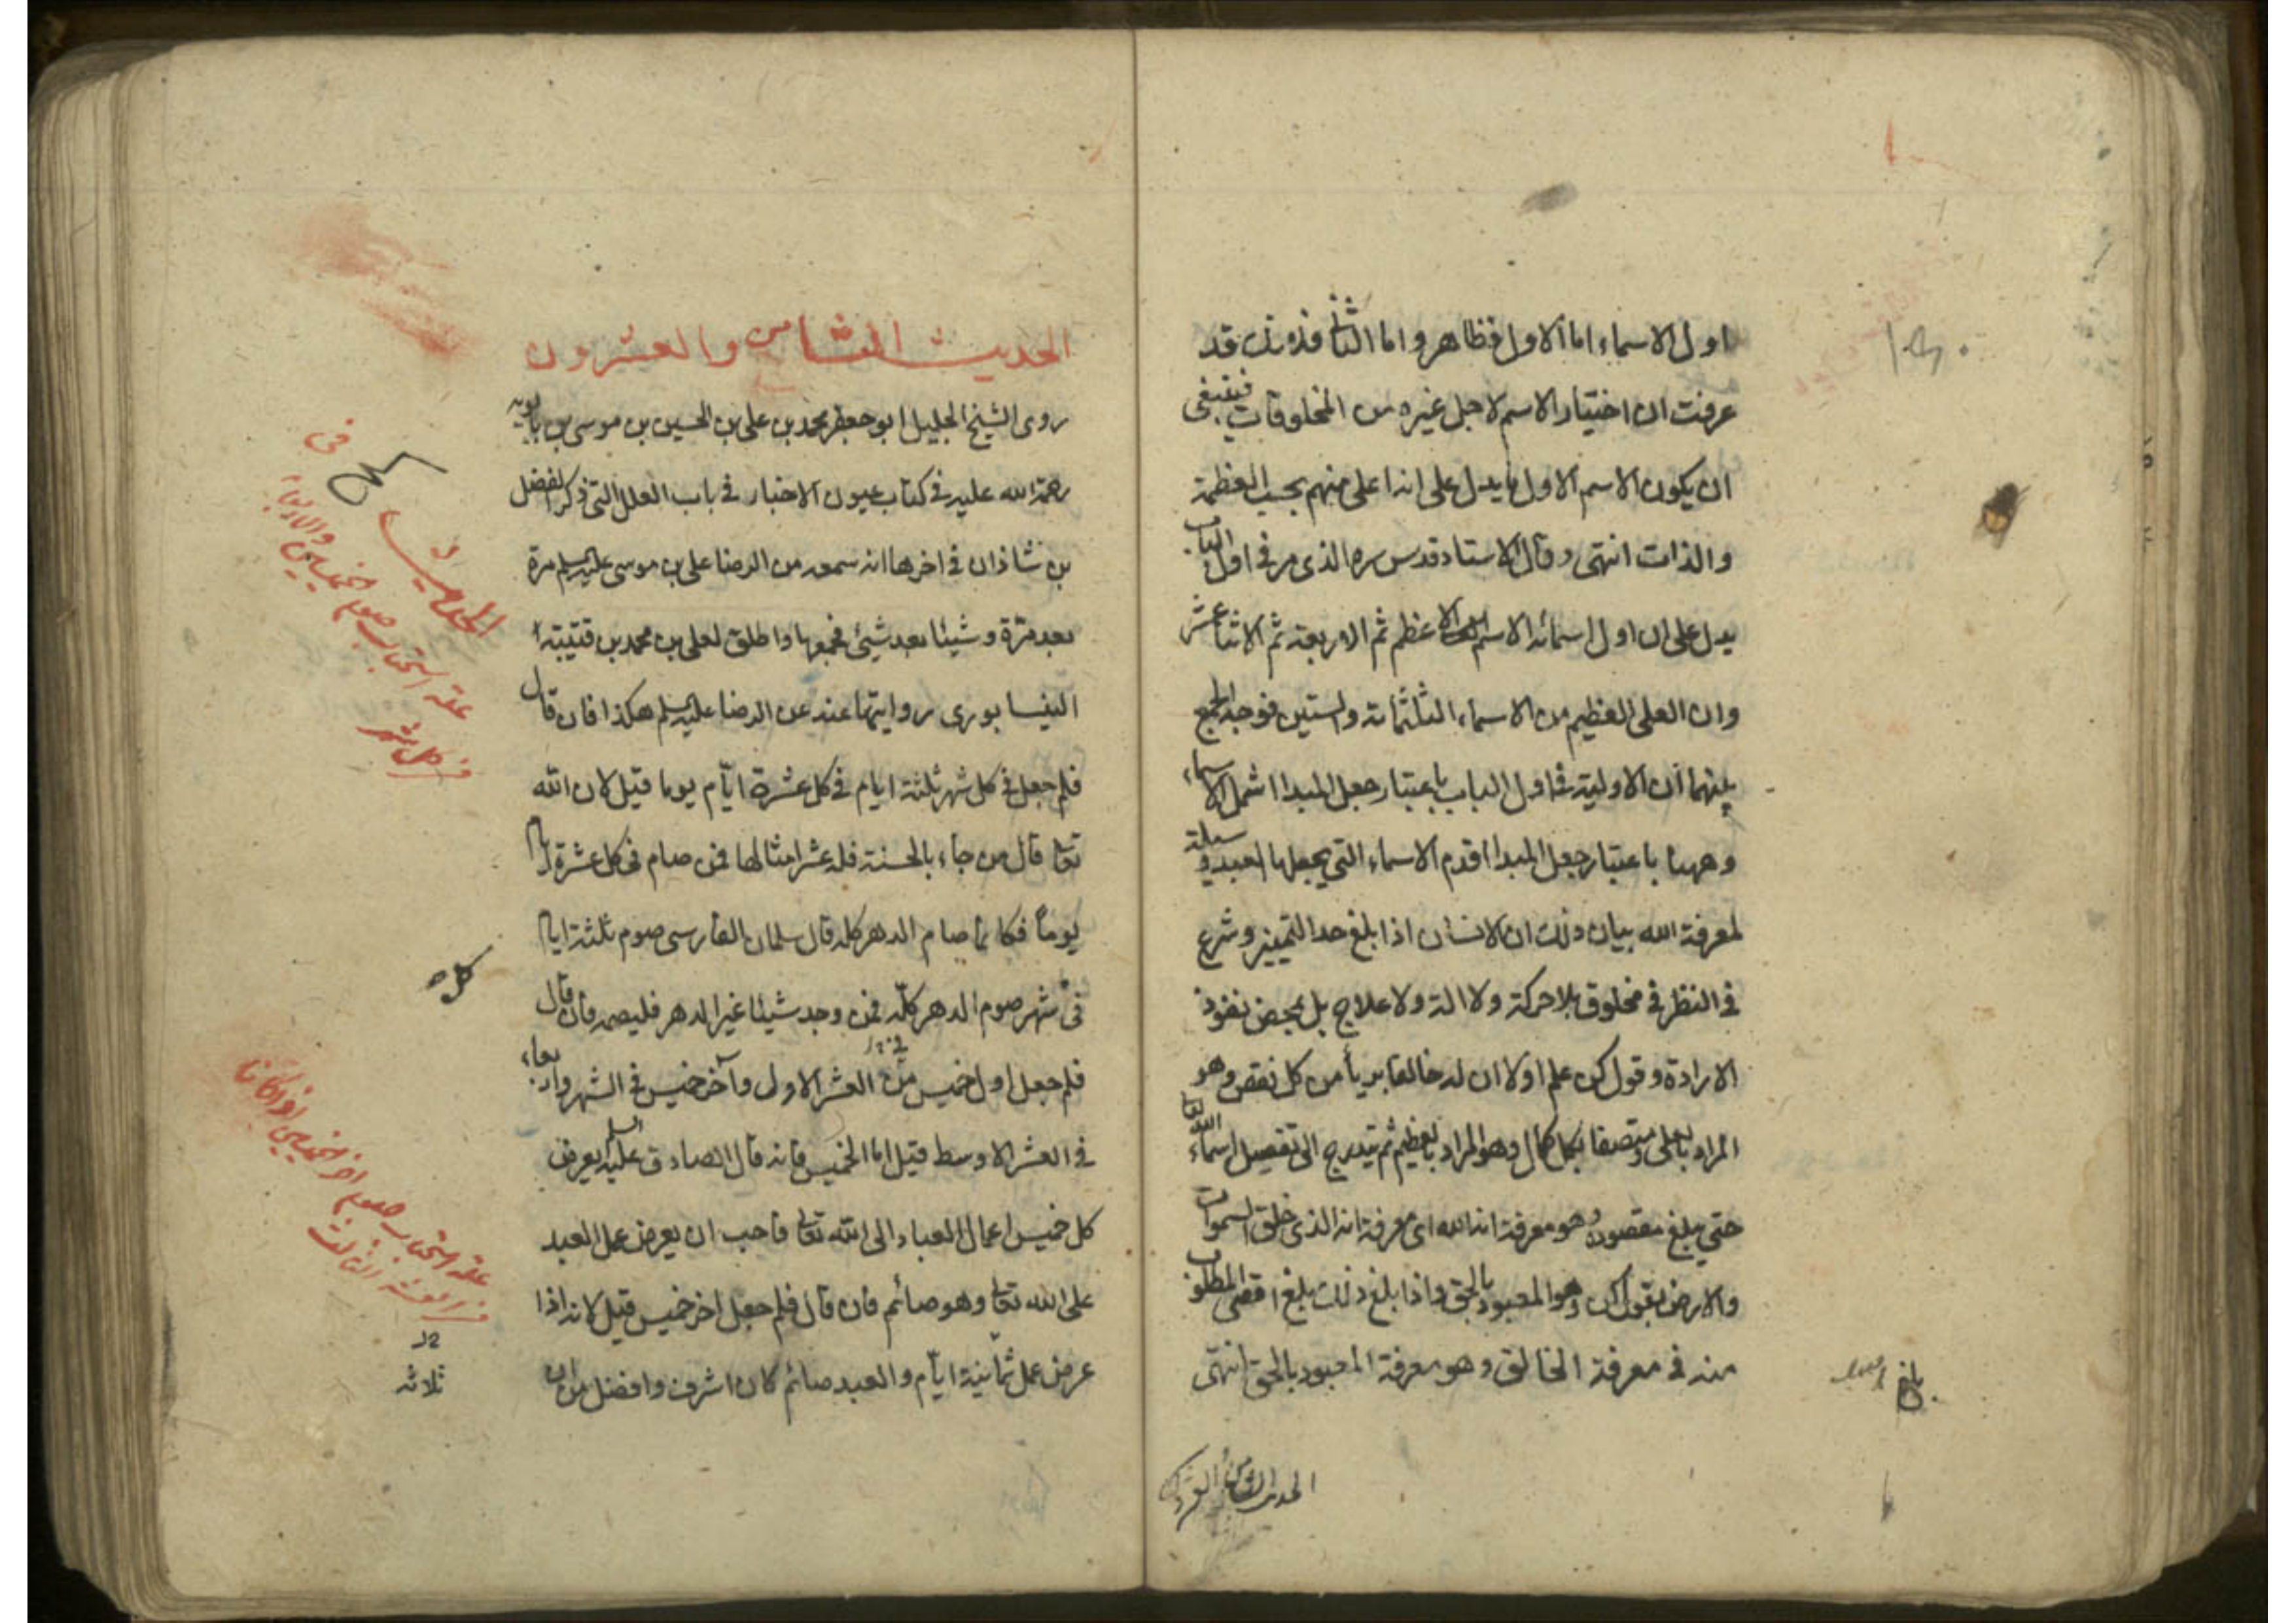 اول الاسماء اما الاول فظاهر واما الثانى فلانك قد
عرفت ان اختيار الاسم لاجل غيره من المخلوقات فينبغى
ان يكون الاسم الاول ما يدل على انه اعلى منهم بحسب العظمة
والذات انتهى وقال الاستاد قدس سره الذى مر فى اول الباب
يدل على ان اول اسمائه الاسم الاعظم ثم الاربعة ثم الاثنا عشر
وان العلى العظيم من الاسماء الثلثمائة والستين فوجه الجمع
بينهما ان الاولية فى اول الباب باعتبار جعل المبدا اشمل الاسماء
وههنا باعتبار جعل المبدا اقدم الاسماء التى يجعلها العبد وسيلة
لمعرفة الله بيان ذلك ان الانسان اذا بلغ حد التمييز وشرع
فى النظر فى مخلوق بلا حركة ولا الة ولا علاج بل بمحض نفوذ
الارادة وقول كن علم اولا ان له خالقا بريأ من كل نقص وهو
المراد بالعلى ومتصفا بكل كمال وهو المراد بالعظيم ثم يتدرج الى تفصيل اسماء الله تعا
حتى يبلغ مقصوده وهو معرفة انه الله اى معرفة انه الذى خلق السموات
والارض بقول كن وهو المعبود بالحق واذا بلغ ذلك بلغ اقصى المطلوب
منه فى معرفة الخالق وهو معرفة المعبود بالحق انتهى
الحديث الثامن
الحديث الثامن والعشرون
روى الشيخ الجليل ابو جعفر محمد بن على بن الحسين بن موسى بن بابويه
رحمة الله عليه فى كتاب عيون الاخبار فى باب العلل التى ذكر الفضل
بن شاذان فى اخرها انه سمعه من الرضا على بن موسى عليه السلم مرة
بعد مرّة وشيئا بعد شيئ فجمعها واطلق لعلى بن محمد بن قتيبة
النيسابورى روايتها عنه عن الرضا عليه السلم هكذا فان قال
فلم جعل فى كل شهر ثلثة ايام فى كل عشرة ايّام يوما قيل لان الله
تعا قال من جاء بالحسنة فله عشر امثالها فمن صام فى كل عشرة ايام
يوماً فكانما صام الدهر كله قال سلمان الفارسى صوم ثلثة ايام
فى شهر صوم الدهر كلّه فمن وجد شيئا غير الدهر فليصمه فان قال
فلم جعل اول خميس من العشر الاولى وآخر خميس فى الشهر واربعاء
فى العشر الاوسط قيل اما الخميس فانه قال الصادق عليه السلم يعرض
كل خميس اعمال العباد الى الله تعا فاحب ان يعرض عمل العبد
على الله تعا وهو صائم فان قال فلم جعل اخر خميس قيل لانه اذا
عرض عمل ثمانية ايّام والعبد صائم كان اشرف وافضل من ان
فى
علة استحباب صوم خميسين والاربعاء
من كل شهر
كل
علة استحباب صوم اخر خميسين اذا كانا
ثلاثه